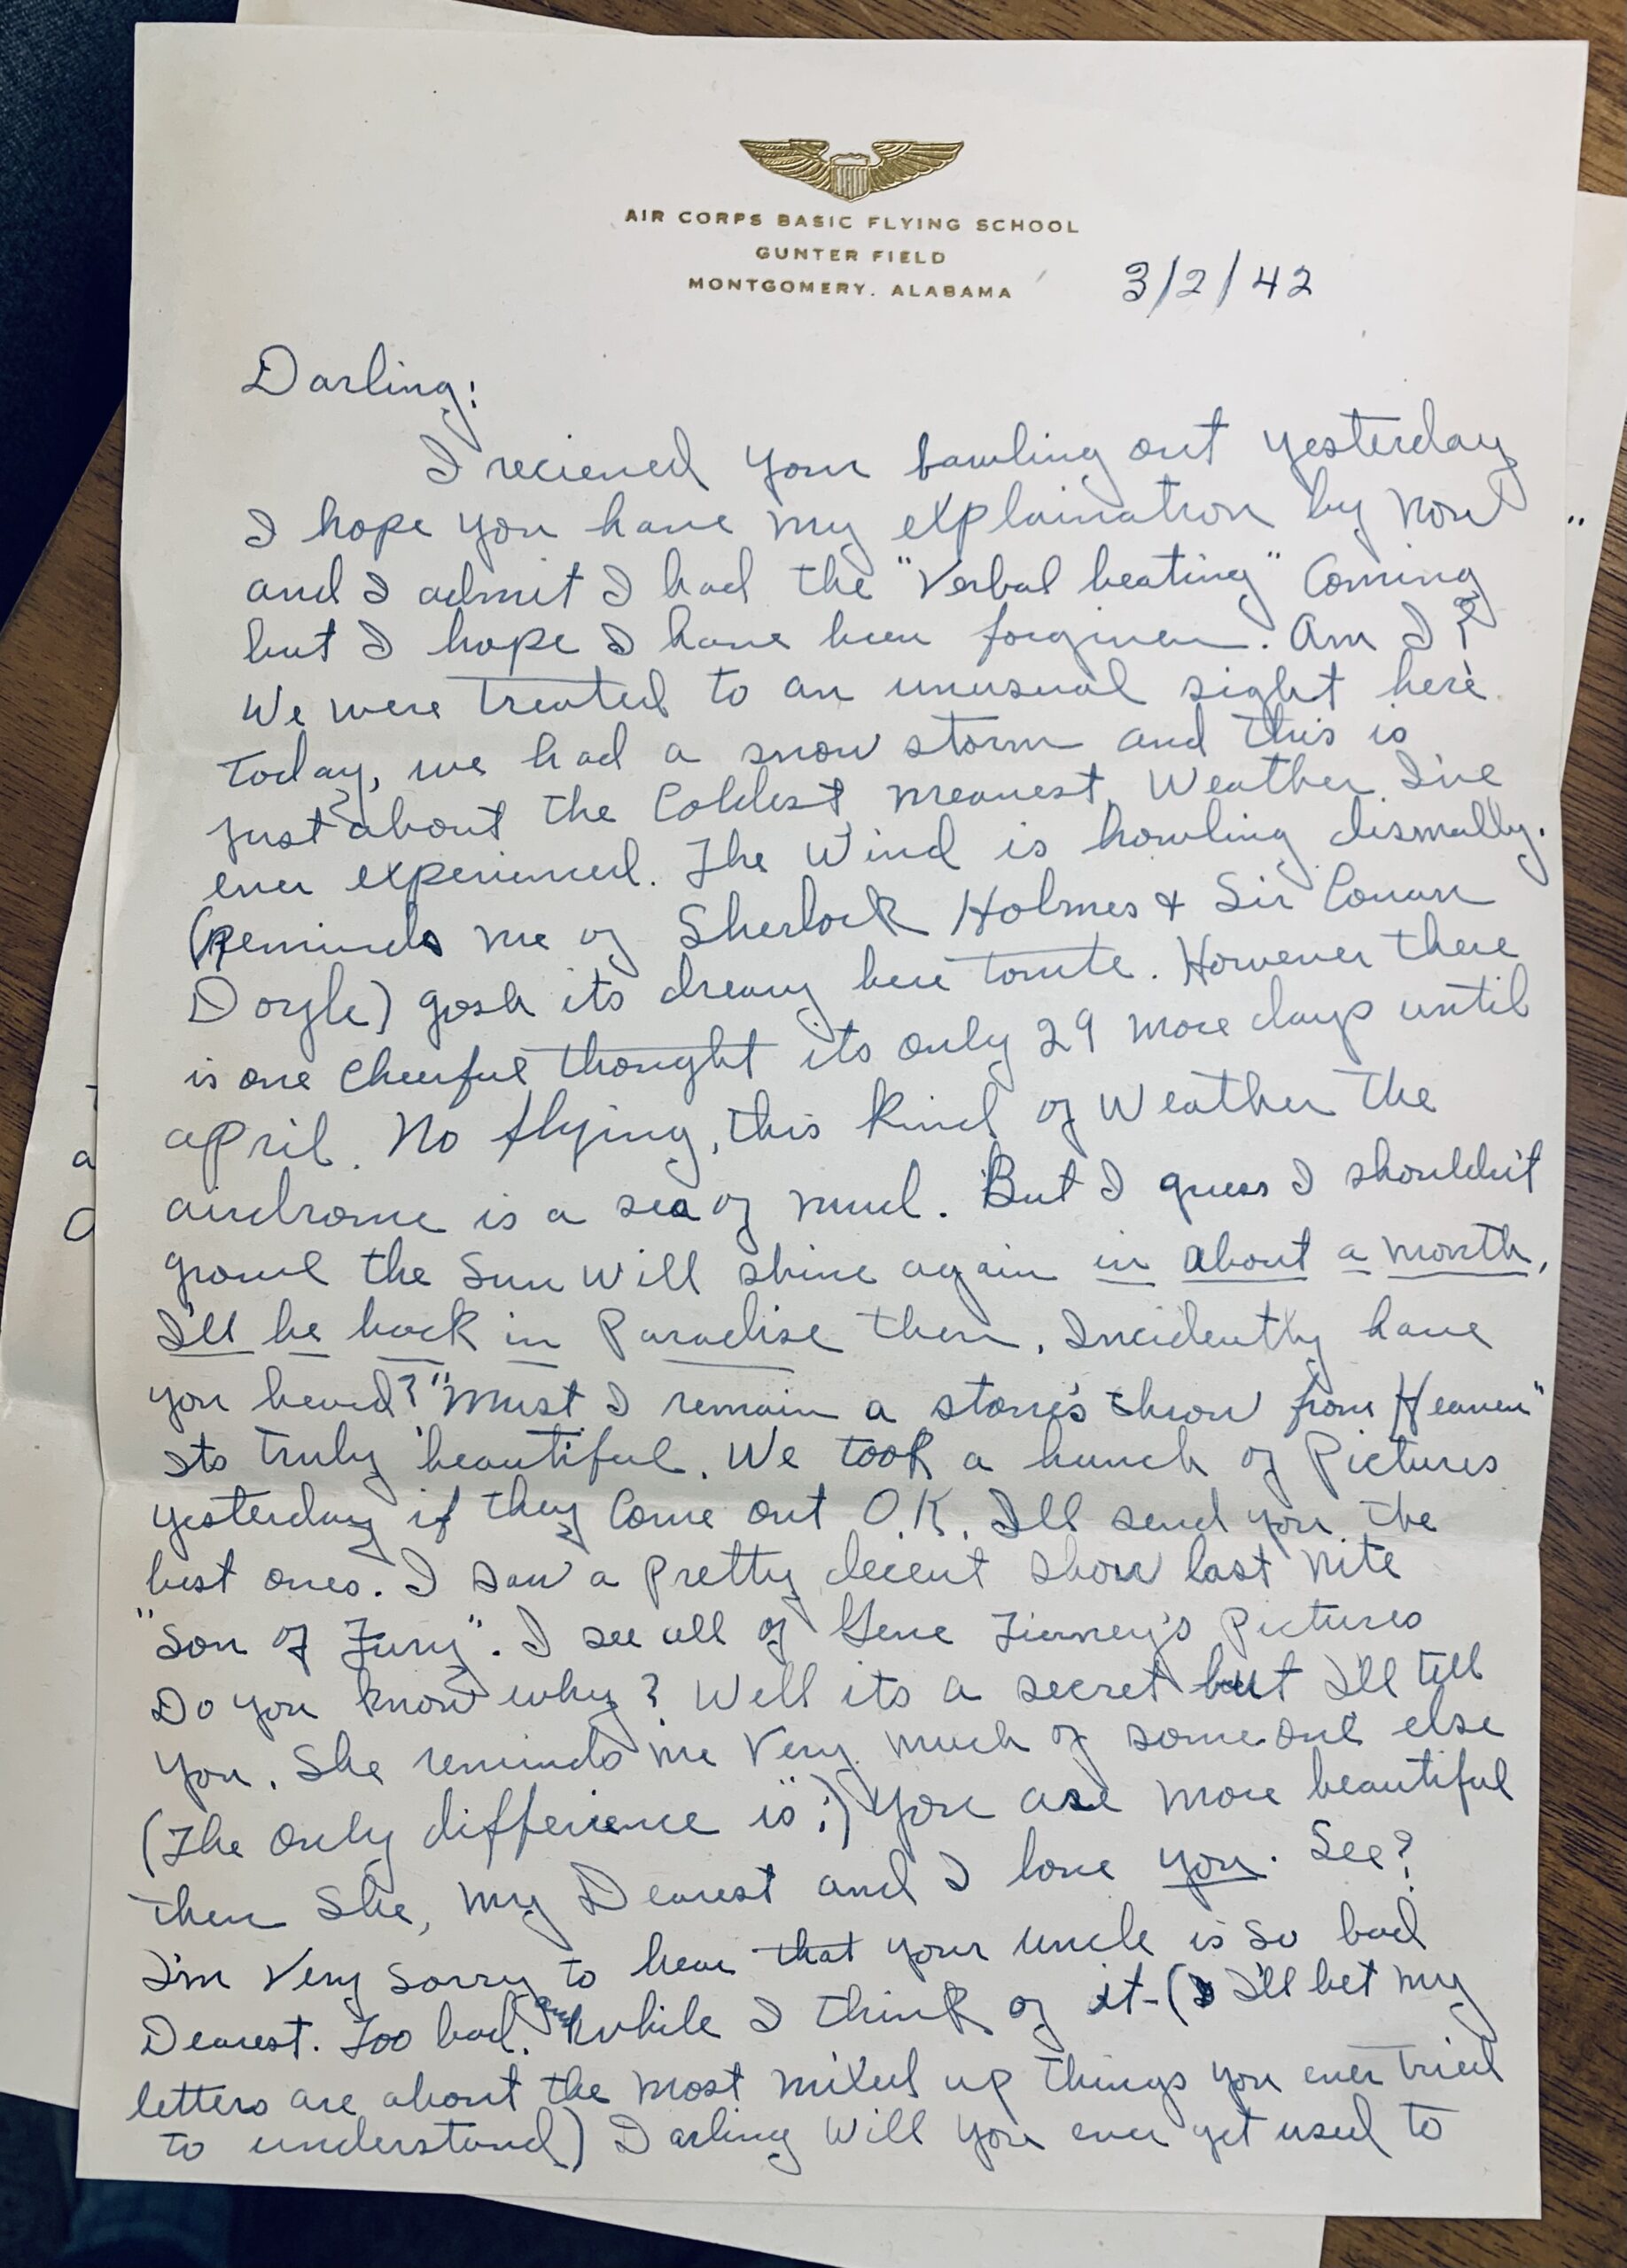 AIR CORPS BASIC FLYING SCHOOL
GUNTER FIELD
MONTGOMERY, ALABAMA
3/2/42
Darling:
I recieved your bawling out yesterday
I hope you have my explaination by now
and I admit I had the "Verbal beating" Coming
but I hope I have been forgiven. Am I?
We were treated to an unusual sight here
today, we had a snow storm and this is
just about the Coldest, meanest, Weather I've
ever experienced. The Wind is howling dismally.
(Reminds me of Sherlock Holmes & Sir Conan
Doyle) gosh its dreary here tonite. However there
is one Cheerful thought its only 29 more days until
april. No flying, this kind of Weather the
airdrome is a sea of mud. But I guess I shouldn't
growl the Sun Will shine again in about a month,
I'll be back in Paradise then. Incidently have
you heard? "Must I remain a stone's throw from Heaven"
Its truly beautiful. We took a bunch of Pictures
yesterday if they Come out O.K. I'll send you the
best ones. I saw a pretty decent show last nite
"Son of Fury". I see all of Gene Tierney's Pictures
Do you know why? Well its a secret but I'll tell
you. She reminds me Very much of someone else
(The only difference is:) you are more beautiful
then She, my Dearest and I love you. See?
I'm Very Sorry to hear that your uncle is so bad
Dearest. Too bad. and while I think of it-( I'll bet my
letters are about the most mixed up things you ever tried
to understand) Darling Will you ever get used to
a